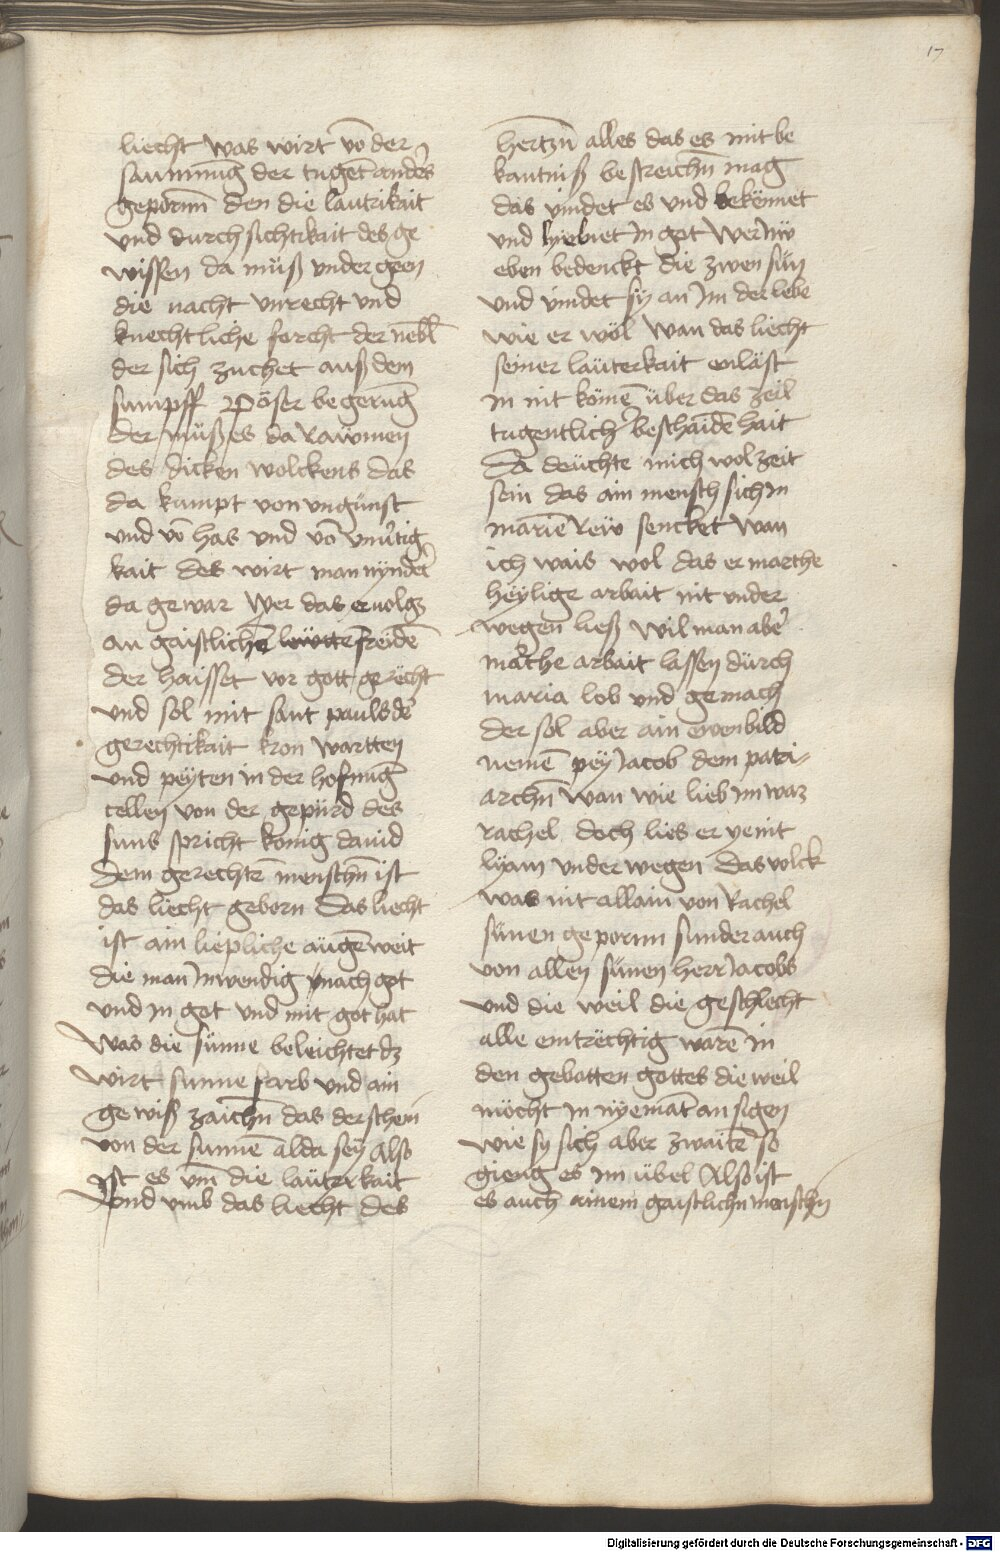 17
liecht was wirt vō der
sammnūg der tugēt anders
geporn̄ den die lautrikait
vnd durchsichtikait des ge
wissen da müß vndergeen
die nacht vnrecht vnd
knechtliche forcht der nebl
der sich zuchet auß dem
sumpff pöser begerūg
der müß es da rawmen
des dicken wolckens das
da kumpt von vngünst
vnd vō has vnd vō vnwirtig
kait des wirt man nyndert
da gewar Wer das ervolgt
an gaistlichē lewtte freidē
der haisset vor gott gerecht
vnd sol mit sant pauls der
gerechtikait kron wartten
vnd peyten in der hofnūg
cellen von der gepürd des
suns spricht konig dauid
dem gerechtē menschn̄ ist
das liecht geborn Das liecht
ist ain liepliche augēweit
die man Inwendig nach got
vnd in got vnd mit got hat
Was die sunne beleichtet dz
wirt sunne farb vnd ain
gewiß zaichn̄ das der schein
von der sunnē alda sey Also
ist es vm̄ die lauterkait
vnd vmb das liecht des
hertzn̄ alles das es mit be
kantniß bestreichn̄ mag
das vindet es vnd bekennet
vnd liebet in got Wer nw
eben bedenckt die zwen sün
vnd vindet sy an im der lebe
wie er wöl Wan das liecht
seiner lauterkait enläst
in nit kömē über das zeil
tugentlicher beschaidēhait
Da deuchte mich wol zeit
sein das ain mensch sich in
mariē rew sencket Wan
ich wais wol das er marthe
heylige arbait nit vnder
wegen ließ Wil man aber
marthe arbait lassen durch
maria lob vnd gemach
der sol aber ain ewenbild
nemē pey Jacob dem patri-
archn̄ Wan wie lieb im waz
rachel doch lies er ye nit
lyam vnderwegen Das volck
was nit allain von Rachel
sünen geporn̄ sunder auch
von allen sünen herr Jacobs
vnd die weil die geschlecht
alle eintrechtig warē in
den gebotten gottes die weil
möcht in nyemāt an sigen
wie sy sich aber zwaitē so
gieng es im übel Also ist
es auch ainem gaistlichn menschn̄
Digitalisierung gefördert durch die Deutsche Forschungsgemeinschaft - DFG